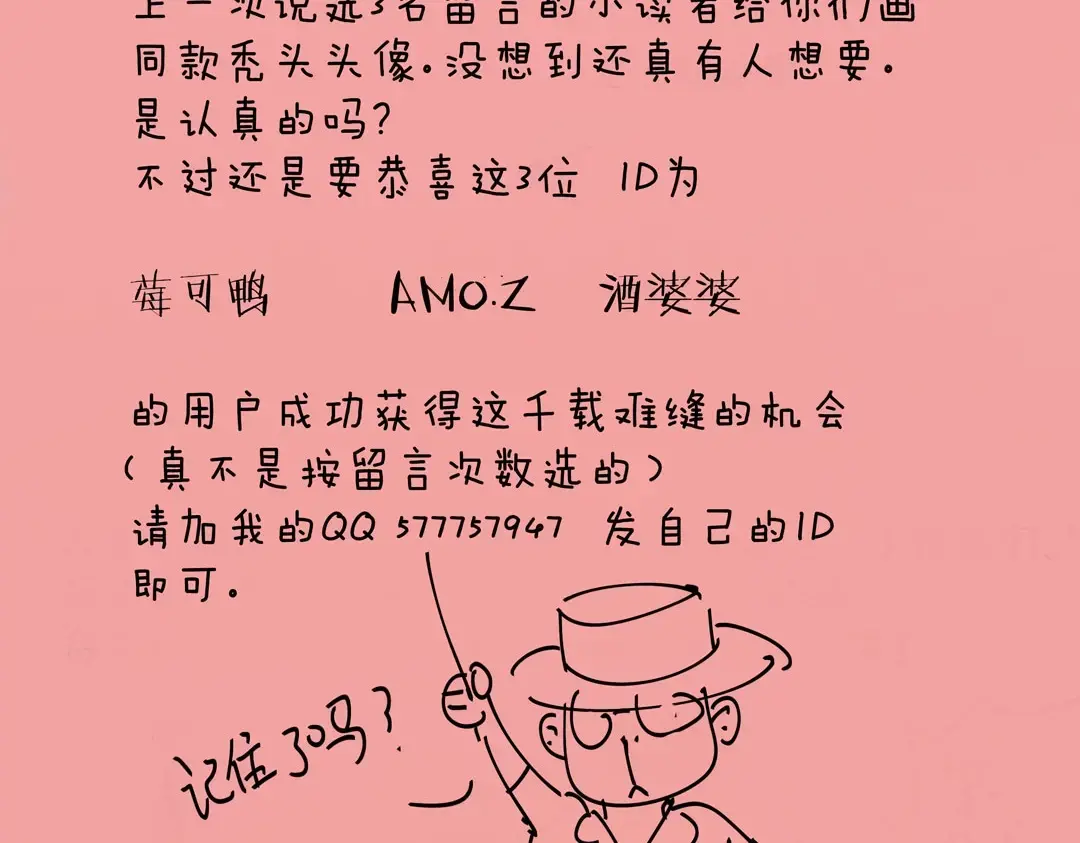 上一次说选3名留言的小读者给你们画
同款秃头头像。没想到还真有人想要。
是认真的吗?
不过还是要恭喜这3位 ID为
莓可鸭 AMO.Z 酒婆婆
的用户成功获得这千载难缝的机会
(真不是按留言次数选的)
请加我的QQ 577757947 发自己的ID
即可。
记住了吗?